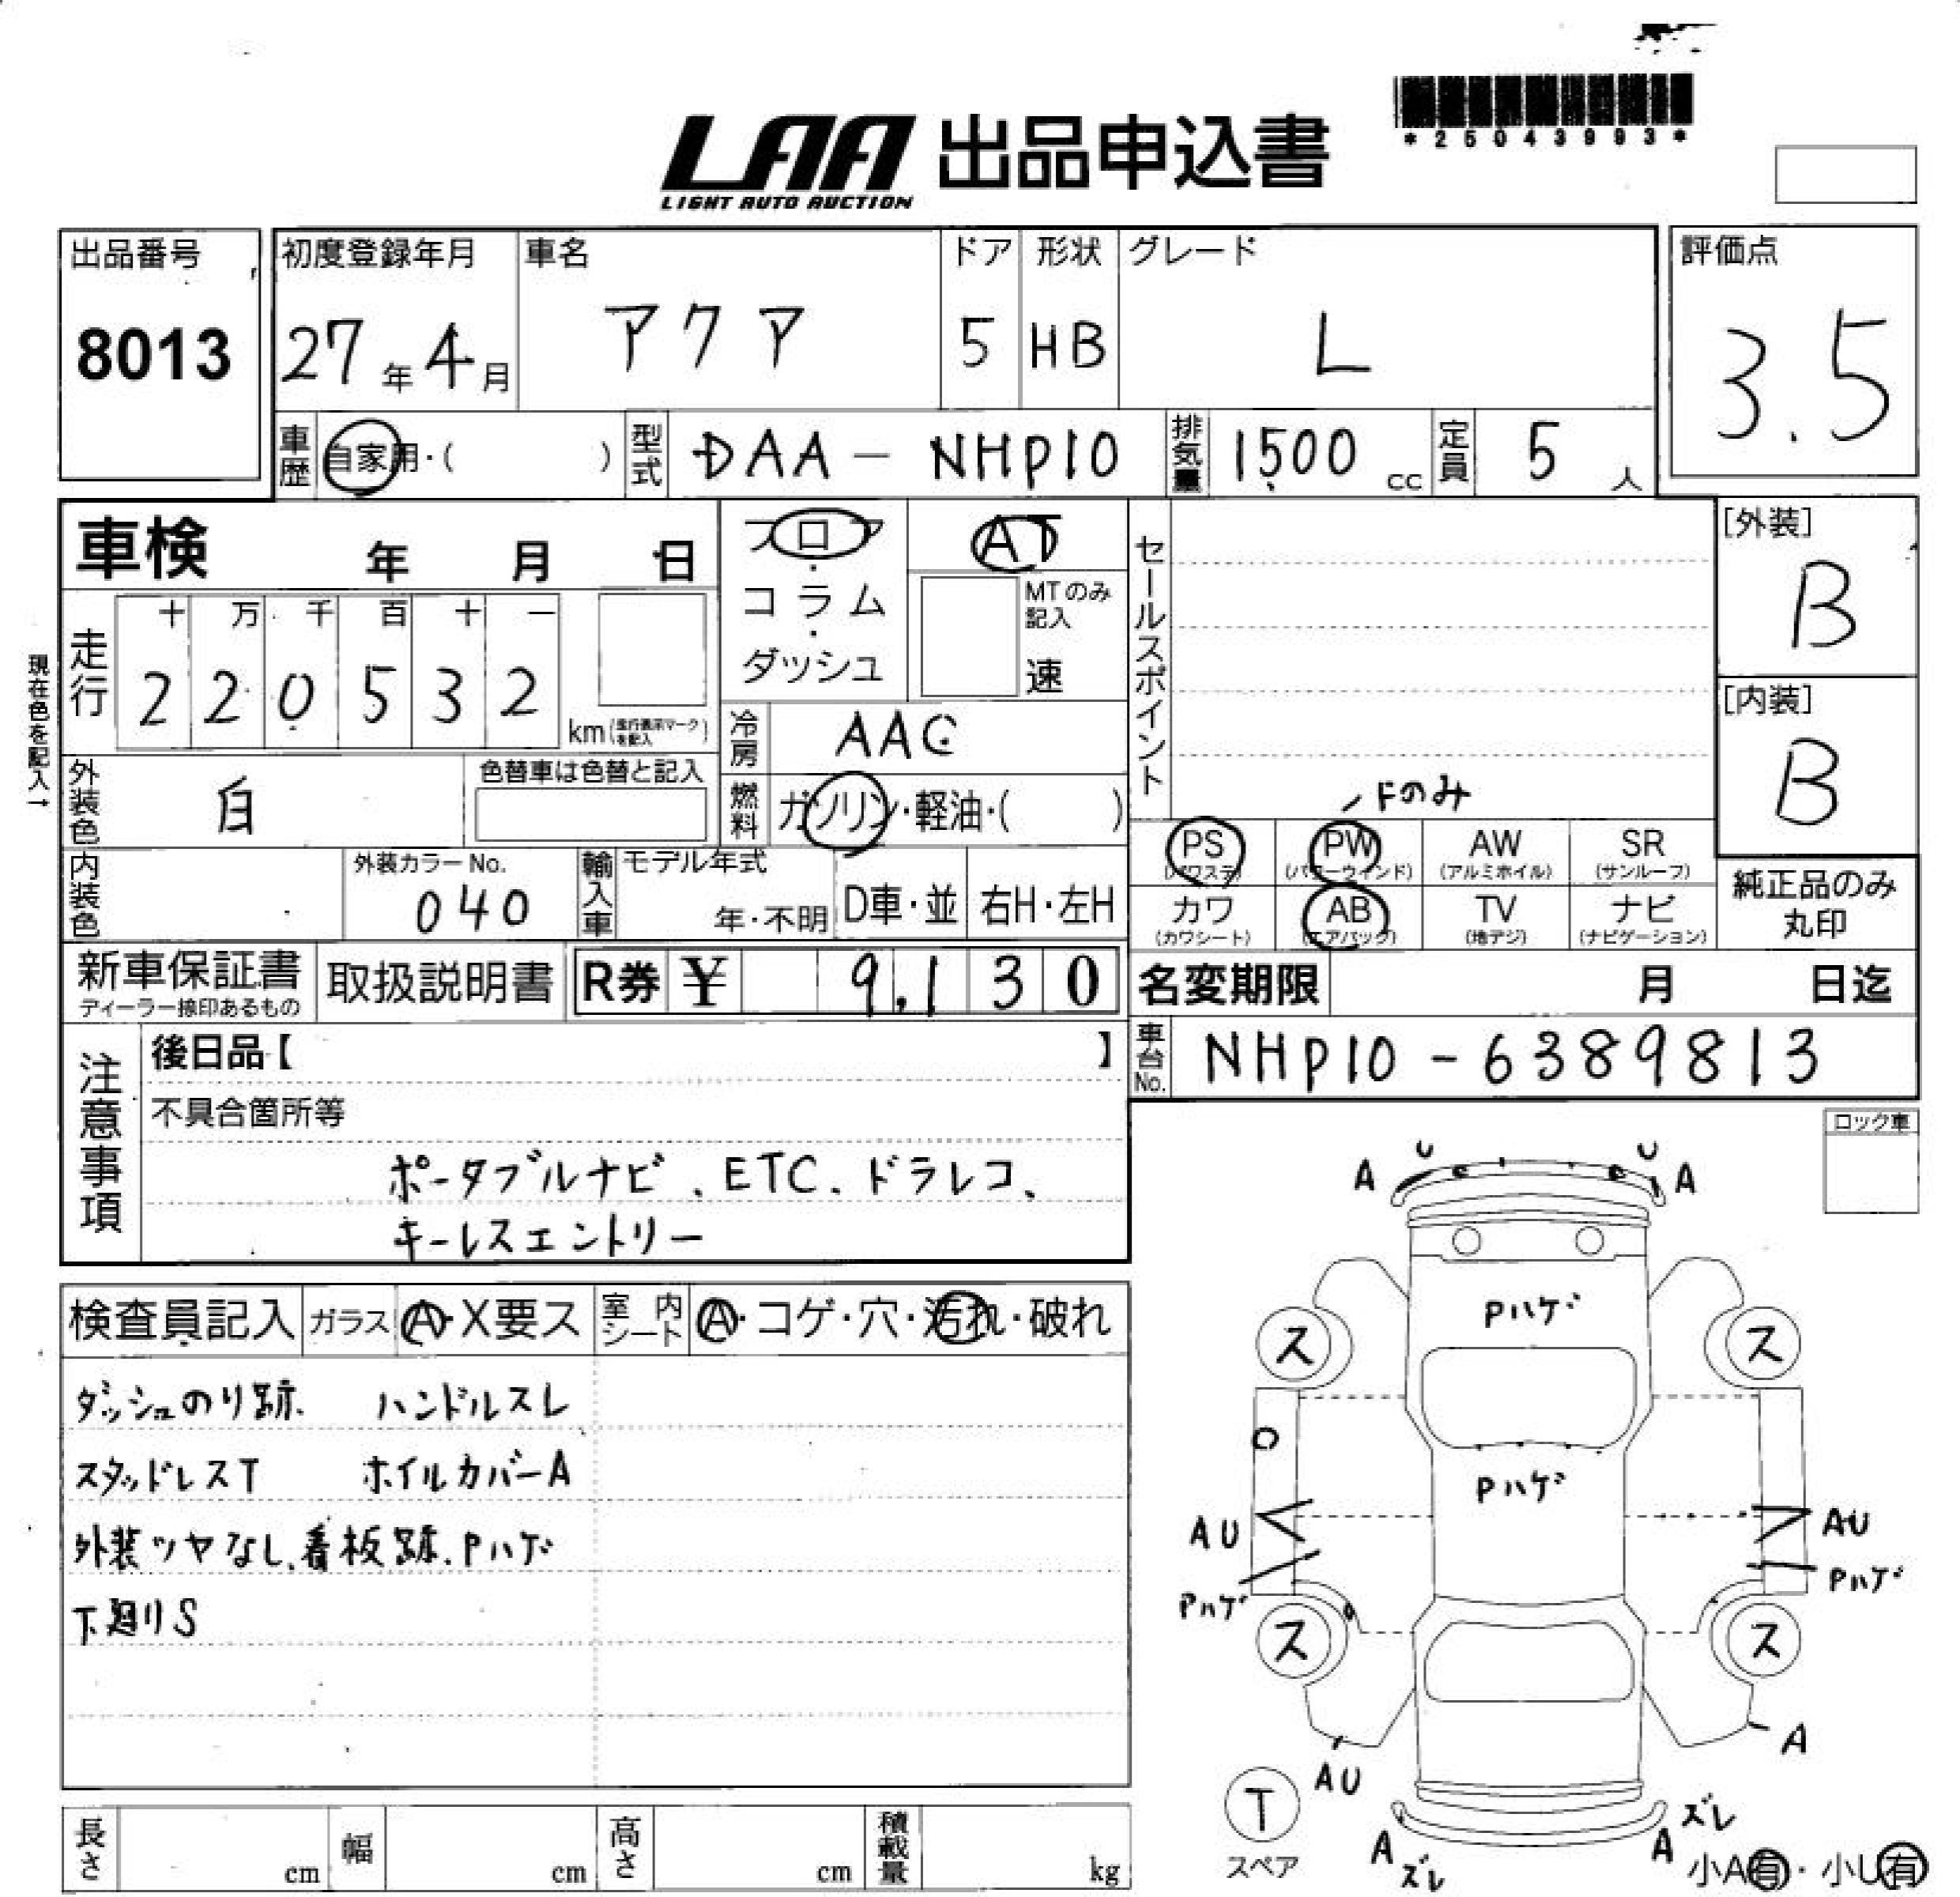 LAA 出品申込書
LIGHT AUTO AUCTION
*25043993*
出品番号
8013
初度登録年月
27年4月
車名
アクア
ドア
5
形状
HB
グレード
L
評価点
3.5
車歴
自家用・( )
型式
DAA-NHP10
排気量
1500 cc
定員
5 人
車検 年 月 日
フロア・コラム・ダッシュ
AT
MTのみ記入
速
セールスポイント
[外装]
B
[内装]
B
現在色を記入→
走行
十 万 千 百 十 一
2 2 0 5 3 2
km(走行表示マークを記入)
冷房
AAC
燃料
ガソリン・軽油・( )
外装色
白
色替車は色替と記入
内装色
外装カラーNo.
040
輸入車
モデル年式
年・不明
D車・並
右H・左H
Fのみ
PS (パワステ)
PW (パワーウインド)
AW (アルミホイル)
SR (サンルーフ)
カワ (カワシート)
AB (エアバック)
TV (地デジ)
ナビ (ナビゲーション)
純正品のみ丸印
新車保証書
ディーラー捺印あるもの
取扱説明書
R券 ¥ 9,130
名変期限 月 日迄
車台No.
NHP10-6389813
注意事項
後日品【 】
不具合箇所等
ポータブルナビ、ETC、ドラレコ、
キーレスエントリー
ロック車
検査員記入
ガラス
A・X要ス
室内シート
A・コゲ・穴・汚れ・破れ
ダッシュのり跡、 ハンドルスレ
スタッドレスT ホイルカバーA
外装ツヤなし、看板跡、Pハゲ
下廻りS
A U U A
Pハゲ
ス ス
Pハゲ
AU AU
Pハゲ Pハゲ
ス ス
A
AU
T
スペア
A ズレ
A ズレ
小A有・小U有
長さ cm
幅 cm
高さ cm
積載量 kg